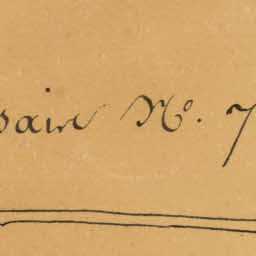 saire No. 7